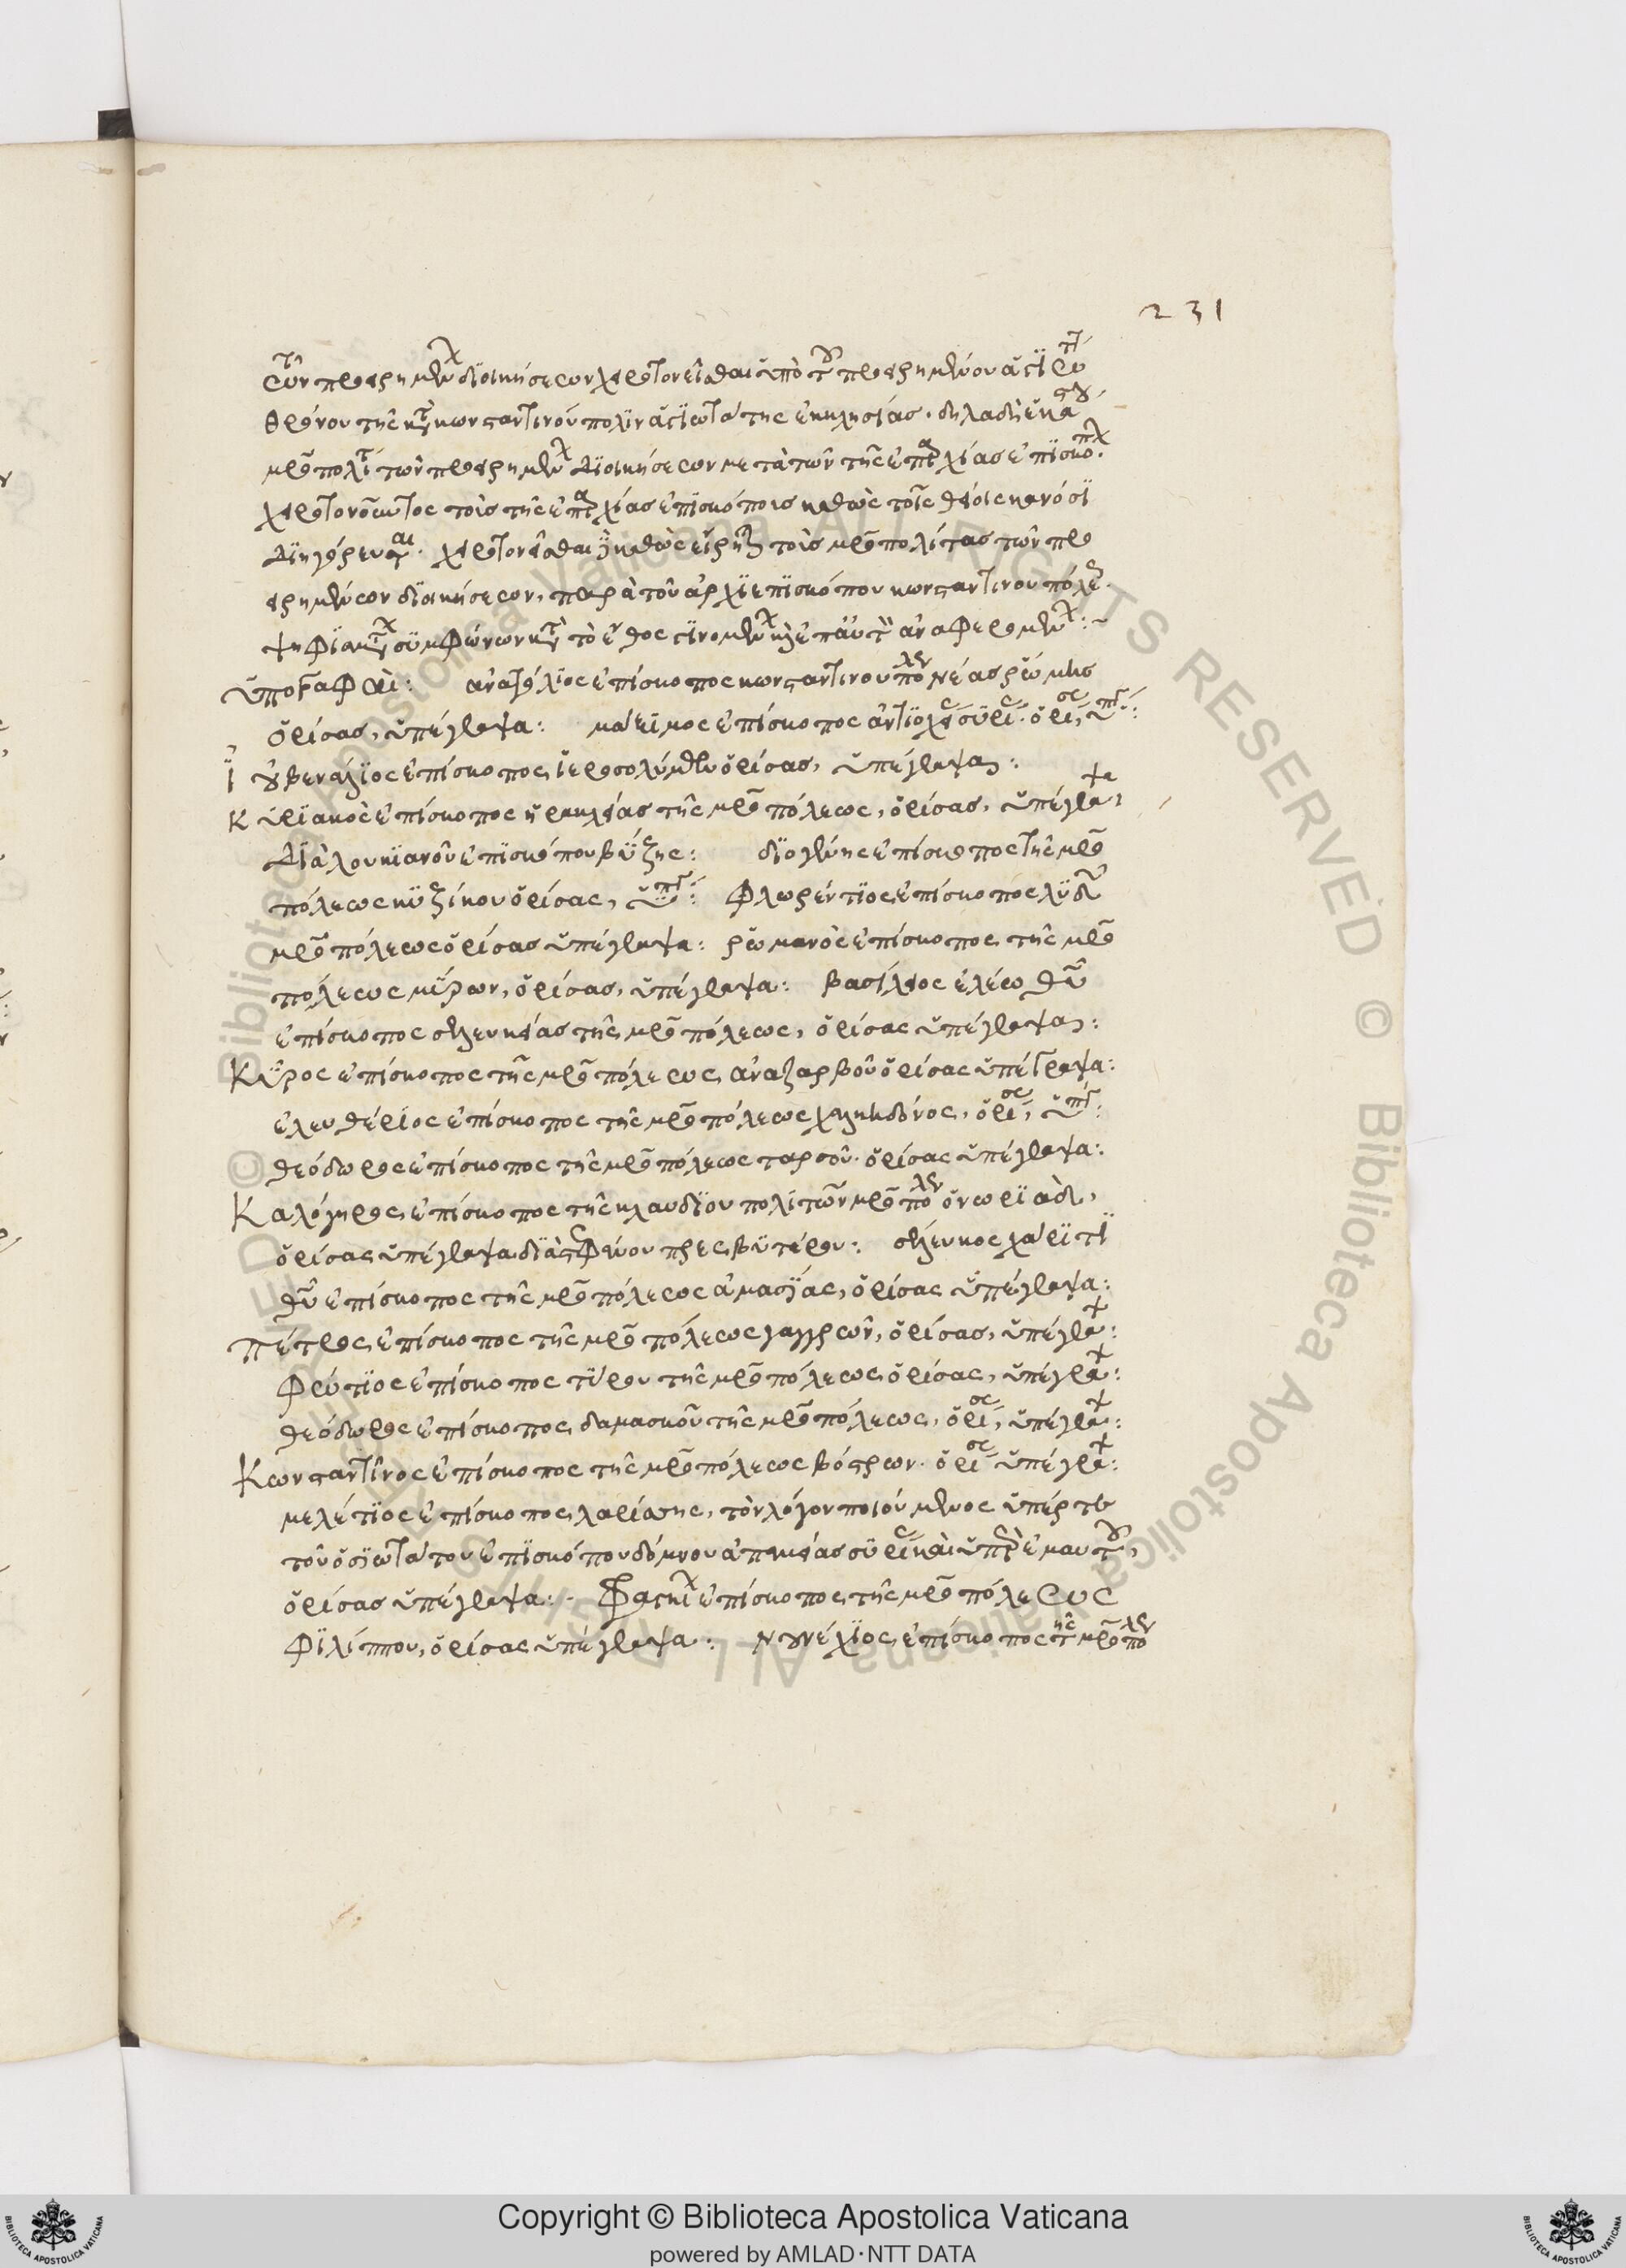 231
τῶν προειρημένων διοικήσεων χειροτονεῖσθαι ὑπὸ τοῦ προειρημένου ἁγιωτ
θρόνου τῆς κατὰ κωνσταντινούπολιν ἁγιωτάτης ἐκκλησίας. δηλαδὴ ἑκάστου
μητροπολίτ τῶν προειρημένων διοικήσεων μετὰ τῶν τῆς ἐπαρχίας ἐπισκόπων.
χειροτονοῦντος τοὺς τῆς ἐπαρχίας ἐπισκόπους καθὼς τοῖς θείοις κανόσι
διηγόρευται. χειροτονεῖσθαι δὲ καθὼς εἴρηται τοὺς μητροπολίτας τῶν προ
ειρημένων διοικήσεων, παρὰ τοῦ ἀρχιεπισκόπου κωνσταντινουπόλε.
ψηφισμάτων συμφώνων κατὰ τὸ ἔθος γινομένων καὶ ἐπ' αὐτὸν ἀναφερομένων:
ὑπογραφαὶ: ἀνατόλιος ἐπίσκοπος κωνσταντινουπόλεως νέας ῥώμης
ὁρίσας, ὑπέγραψα: μάξιμος ἐπίσκοπος ἀντιοχείας συρίας. ὁρίσας, ὑπέγ:
ἰουβενάλιος ἐπίσκοπος, ἱεροσολύμων ὁρίσας, ὑπέγραψα:
Κυριακὸς ἐπίσκοπος ἡρακλείας τῆς μητροπόλεως, ὁρίσας, ὑπέγραψα
διὰ λουκιανοῦ ἐπισκόπου βύζης: διογένης ἐπίσκοπος τῆς μητρο
πόλεως κυζίκου ὁρίσας, ὑπέγ: Φλωρέντιος ἐπίσκοπος λυδῶν
μητροπόλεως ὁρίσας ὑπέγραψα: ῥωμανὸς ἐπίσκοπος τῆς μητρο
πόλεως μύρων, ὁρίσας, ὑπέγραψα: βασίλειος ἐλέω θῦ
ἐπίσκοπος σελευκείας τῆς μητροπόλεως, ὁρίσας ὑπέγραψα:
Κῦρος ἐπίσκοπος τῆς μητροπόλεως ἀναζαρβοῦ ὁρίσας ὑπέγραψα:
ἐλευθέριος ἐπίσκοπος τῆς μητροπόλεως χαλκηδόνος, ὁρίσ, ὑπέγ:
θεόδωρος ἐπίσκοπος τῆς μητροπόλεως ταρσοῦ. ὁρίσας ὑπέγραψα:
Καλόγηρος, ἐπίσκοπος τῆς κλαυδιουπολιτῶν μητροπόλεως ὀνωριάδι,
ὁρίσας ὑπέγραψα διὰ πρεσβυτέρου: σέλευκος χάριτι
θῦ ἐπίσκοπος τῆς μητροπόλεως ἀμασίας, ὁρίσας ὑπέγραψα:
Πέτρος, ἐπίσκοπος τῆς μητροπόλεως γαγγρῶν, ὁρίσας, ὑπέγραψ:
Φώτιος ἐπίσκοπος τύρου τῆς μητροπόλεως, ὁρίσας, ὑπέγραψ:
θεόδωρος ἐπίσκοπος, δαμασκοῦ τῆς μητροπόλεως, ὁρίσ, ὑπέγραψ:
Κωνσταντῖνος ἐπίσκοπος τῆς μητροπόλεως βόστρων. ὁρίσ ὑπέγραψ:
μελέτιος ἐπίσκοπος, λαρίσσης, τὸν λόγον ποιούμενος ὑπέρ τε
τοῦ ὁσιωτάτου ἐπισκόπου δόμνου ἀπαμείας συρίας καὶ ὑπὲρ ἐμαυτοῦ,
ὁρίσας ὑπέγραψα: ἐπίσκοπος, τῆς μητροπόλεως
Φιλίππου, ὁρίσας ὑπέγραψα: νουνέχιος, ἐπίσκοπος τῆς μητροπόλεως
Copyright © Biblioteca Apostolica Vaticana
powered by AMLAD·NTT DATA